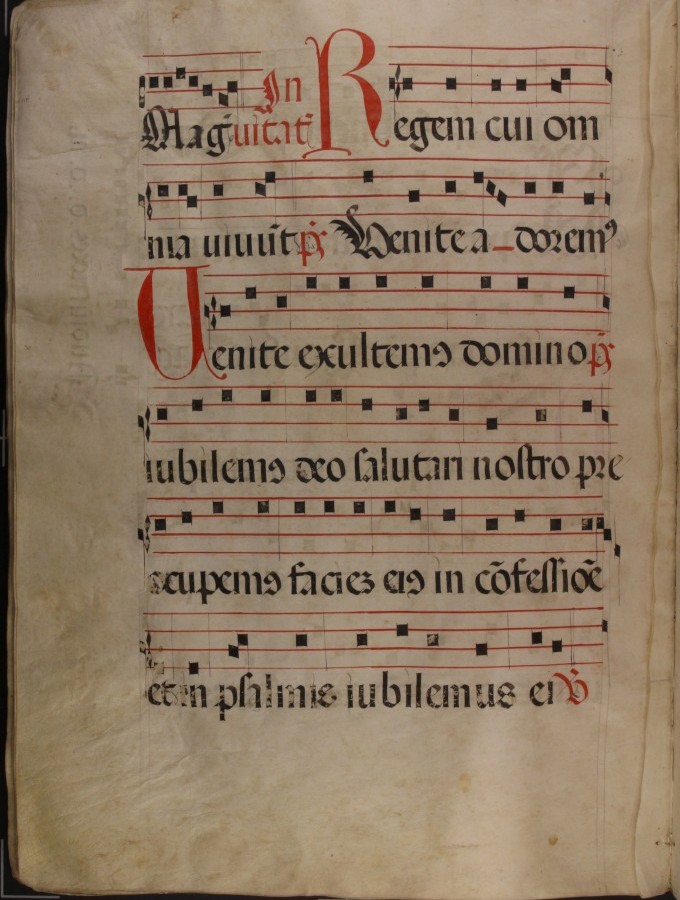 In
Mag uitat Regem cui om
nia uiuūt p̄s Venite a_dorem⁹
Uenite exultem⁹ domino p̄s
iubilem⁹ deo salutari nostro pre
ocupem⁹ facieʒ ei⁹ in cōfessiōe
et in psalmis iubilemus ei